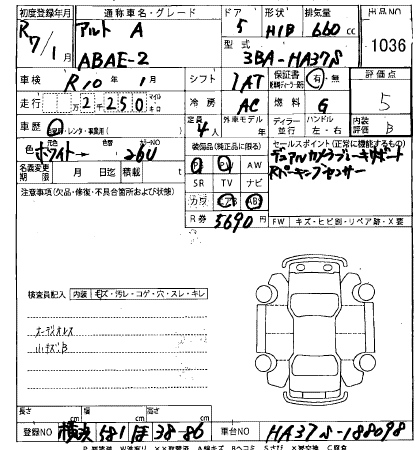 初度登録年月 通称車名・グレード ドア 形状 排気量 出品NO
R7/1 アルト A 5 H/B 660 cc 1036
ABAE-2 型式 3BA-HA37S
車検 R10年1月 シフト 1AT 保証書 有・無 評価点
走行 2,250 マイル キロ 冷房 AC 燃料 G 5
車歴 自家用・レンタ・事業用( ) 定員 4人 外車モデル年 ディーラー 並行 ハンドル 左・右 内装評価 B
色 ホワイト 色替 カラーNO 26U 装備品(純正に限る) セールスポイント(正常に機能するもの)
PS PW AW デュアルカメラブレーキサポート
名義変更期限 月 日迄 積載 t SR TV ナビ Rパーキングセンサー
注意事項(欠品・修復・不具合箇所および状態) カワ エアB ABS
R券 5690円 FW キズ・ヒビ割・リペア跡・X要
検査員記入 内装 モズ・汚レ・コゲ・穴・スレ・キレ
オーディオレス
小キズB
長さ cm 幅 cm 高さ cm
登録NO 横浜 581 ほ 38-86 車台NO HA37S-188098